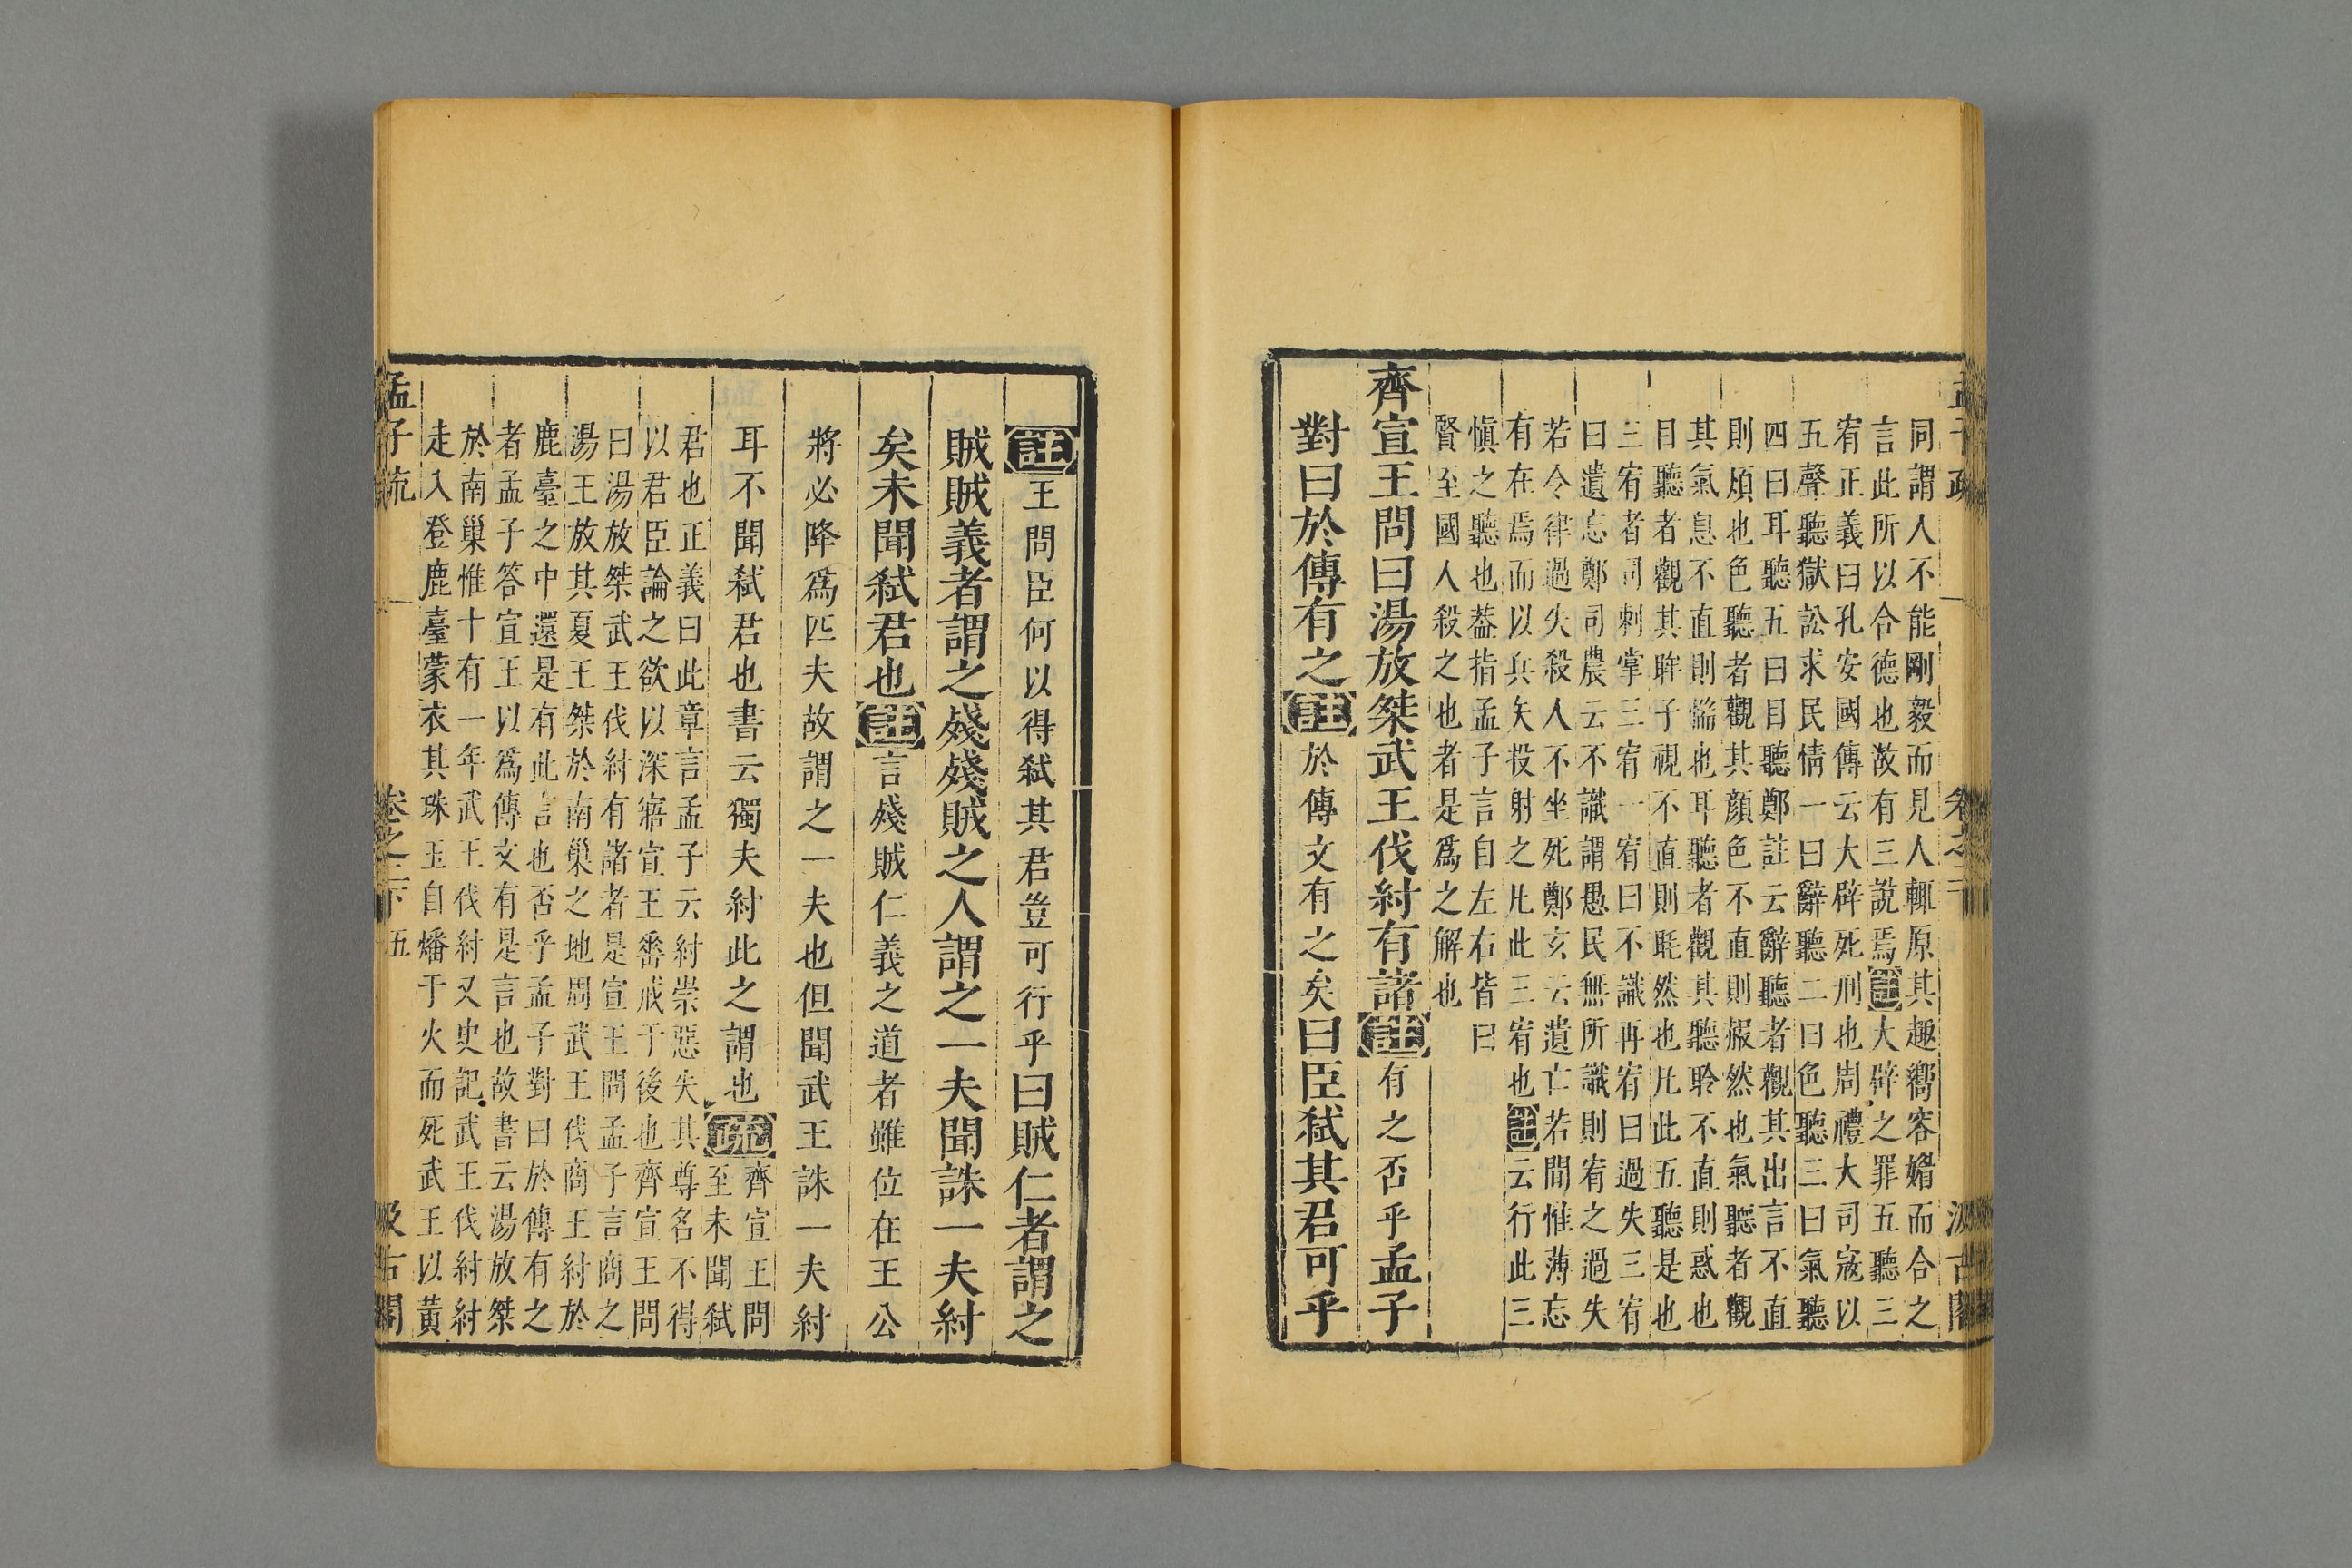 同謂人不能剛毅而見人輒原其趣嚮容媚而合之
言此所以合德也故有三說焉註大辟之罪五聽三
宥正義曰孔安國傳云大辟死刑也周禮大司寇以
五聲聽獄訟求民情一曰辭聽二曰色聽三曰氣聽
四曰耳聽五曰目聽鄭註云辭聽者觀其出言不直
則煩也色聽者觀其顏色不直則赧然也氣聽者觀
其氣息不直則惴也耳聽者觀其聽聆不直則惑也
目聽者觀其眸子視不直則眊然也凡此五聽是也
三宥者司刺掌三宥一宥曰不識再宥曰過失三宥
曰遺忘鄭司農云不識謂愚民無所識則宥之過失
若令律過失殺人不坐死鄭玄云遺亡若間惟薄忘
有在焉而以兵矢投射之凡此三宥也註云行此三
愼之聽也葢指孟子言自左右皆曰
賢至國人殺之也者是爲之解也
齊宣王問曰湯放桀武王伐紂有諸註有之否乎孟子
對曰於傳有之註於傳文有之矣曰臣弑其君可乎
註王問臣何以得弑其君豈可行乎曰賊仁者謂之
賊賊義者謂之殘殘賊之人謂之一夫聞誅一夫紂
矣未聞弑君也註言殘賊仁義之道者雖位在王公
將必降爲匹夫故謂之一夫也但聞武王誅一夫紂
耳不聞弑君也書云獨夫紂此之謂也疏齊宣王問
至未聞弑
君也正義曰此章言孟子云紂崇惡失其尊名不得
以君臣論之欲以深寤宣王垂戒于後也齊宣王問
曰湯放桀武王伐紂有諸者是宣王問孟子言商之
湯王放其夏王桀於南巢之地周武王伐商王紂於
鹿臺之中還是有此言也否乎孟子對曰於傳有之
者孟子答宣王以爲傳文有是言也故書云湯放桀
於南巢惟十有一年武王伐紂又史記武王伐紂紂
走入登鹿臺蒙衣其珠玉自燔于火而死武王以黃
孟子疏 卷之二下 五 汲古閣